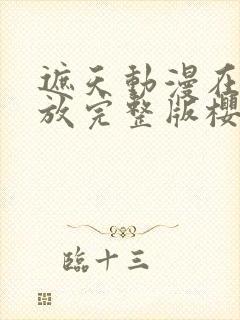 遮天動漫在
放完整版櫻
臨十三